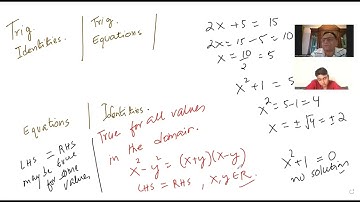 Trig
Identities.
Trig.
Equations
2x + 5 = 15
2x = 15 - 5 = 10
x = 10/2 = 5
x² + 1 = 5
x² = 5 - 1 = 4
x = ± √4 = ± 2
x² + 1 = 0
no solution
Equations
LHS = RHS
may be true
for some
values
Identities.
True for all values
in the domain.
x² - y² = (x+y)(x-y)
LHS = RHS , x, y ∈ R.